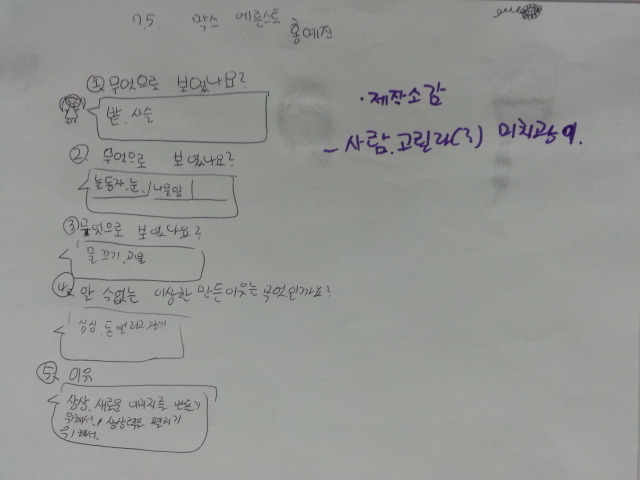 7.5 막스 에른스트 홍예진
① 무엇으로 보였나요?
발, 사슬
② 무엇으로 보였나요?
눈동자, 눈, 나뭇잎
③ 무엇으로 보였나요?
물고기,
④ 알 수없는 이상한 만든이유는 무엇인가요?
심심, 돈
⑤ 이유
상상, 새로운 이미지를 만들기
위해서, 상상력을 펼치기
위해서.
· 제작소감
- 사람, 고릴라(?) 미치광이.